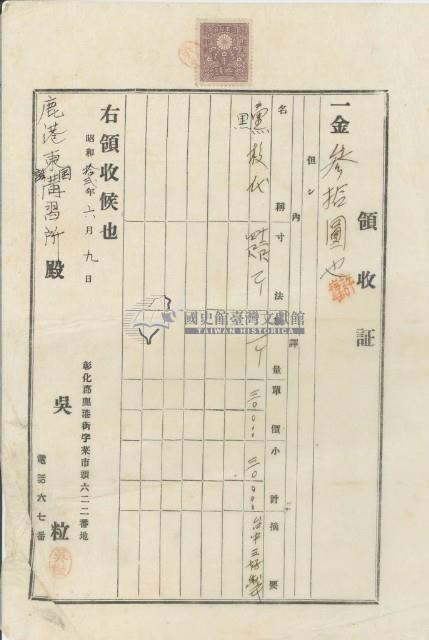 領收証
一金 參拾圓也
但シ
內譯
名稱 寸法 量 單價 小計 摘要
黑板代 三〇〇〇 三〇〇〇
右領收候也
昭和拾弍年六月九日
鹿港東國語講習所 殿
彰化郡鹿港街字菜市頭六二二番地
吳粒
電話六七番
國史館臺灣文獻館
TAIWAN HISTORICA